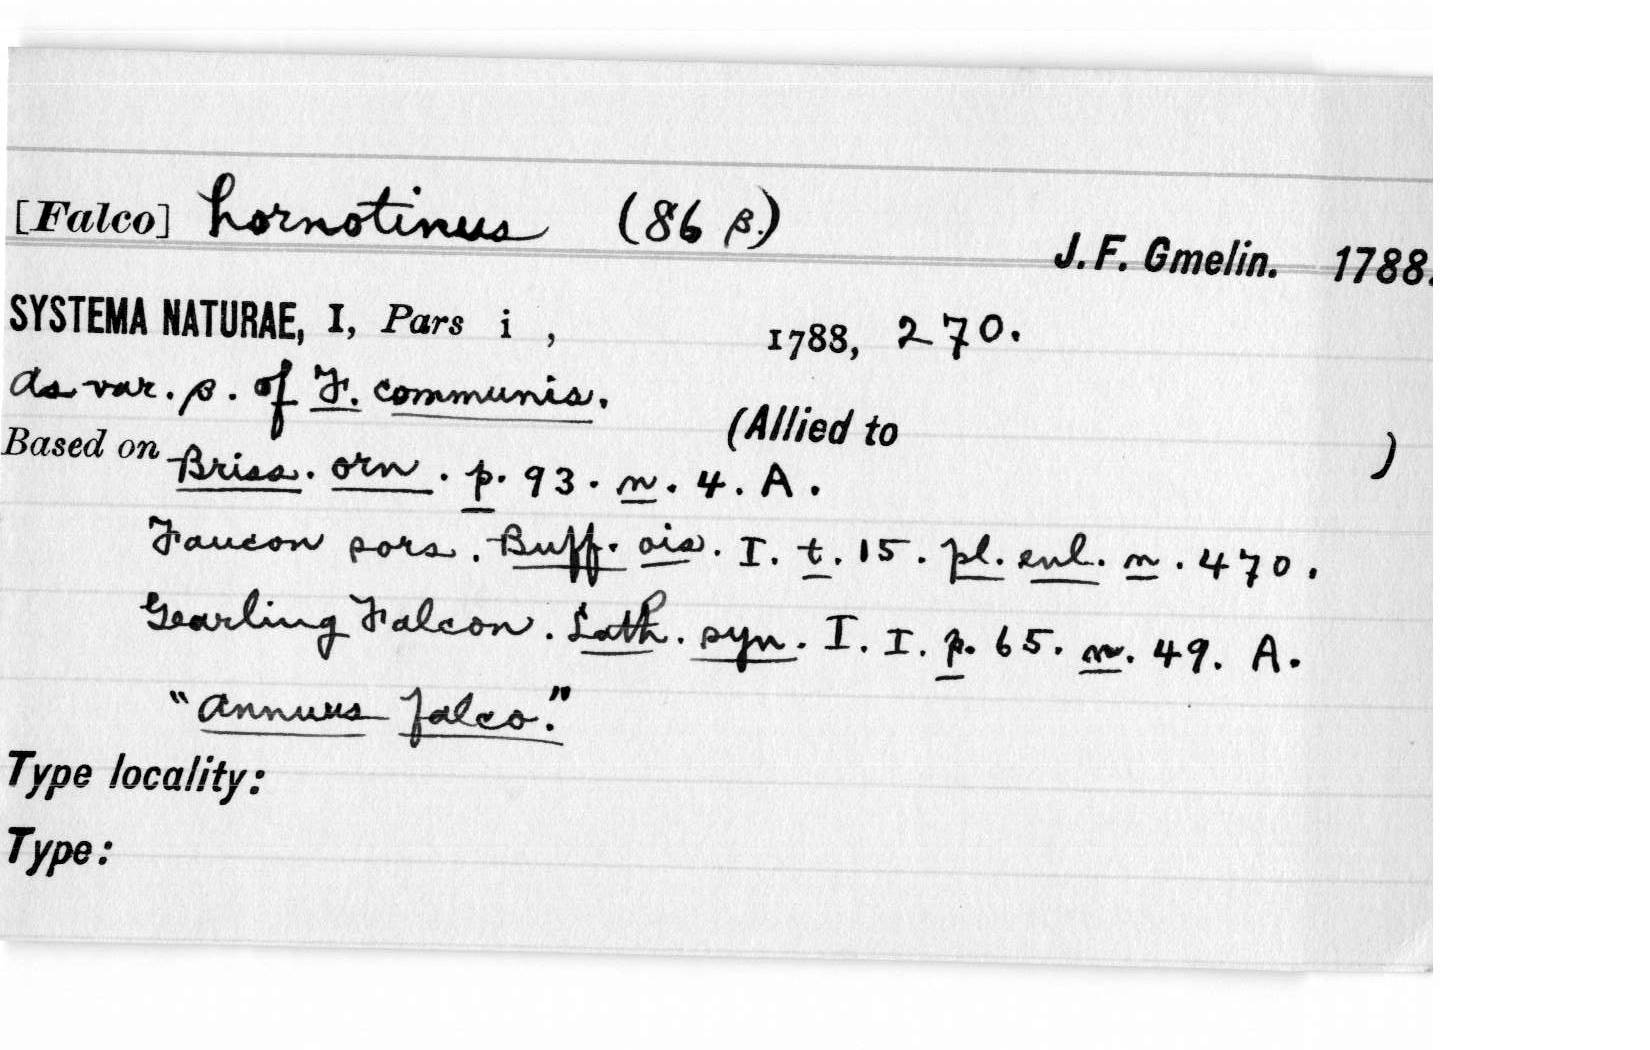 [Falco] hornotinus (86 β.)
J. F. Gmelin. 1788.
SYSTEMA NATURAE, I, Pars i , 1788, 270.
As var. β. of F. communis.
(Allied to )
Based on Briss. orn. p. 93. n. 4. A.
Faucon sors. Buff. ois. I. t. 15. pl. enl. n. 470.
Yearling Falcon. Lath. syn. I. I. p. 65. n. 49. A.
"annuus falco."
Type locality:
Type: